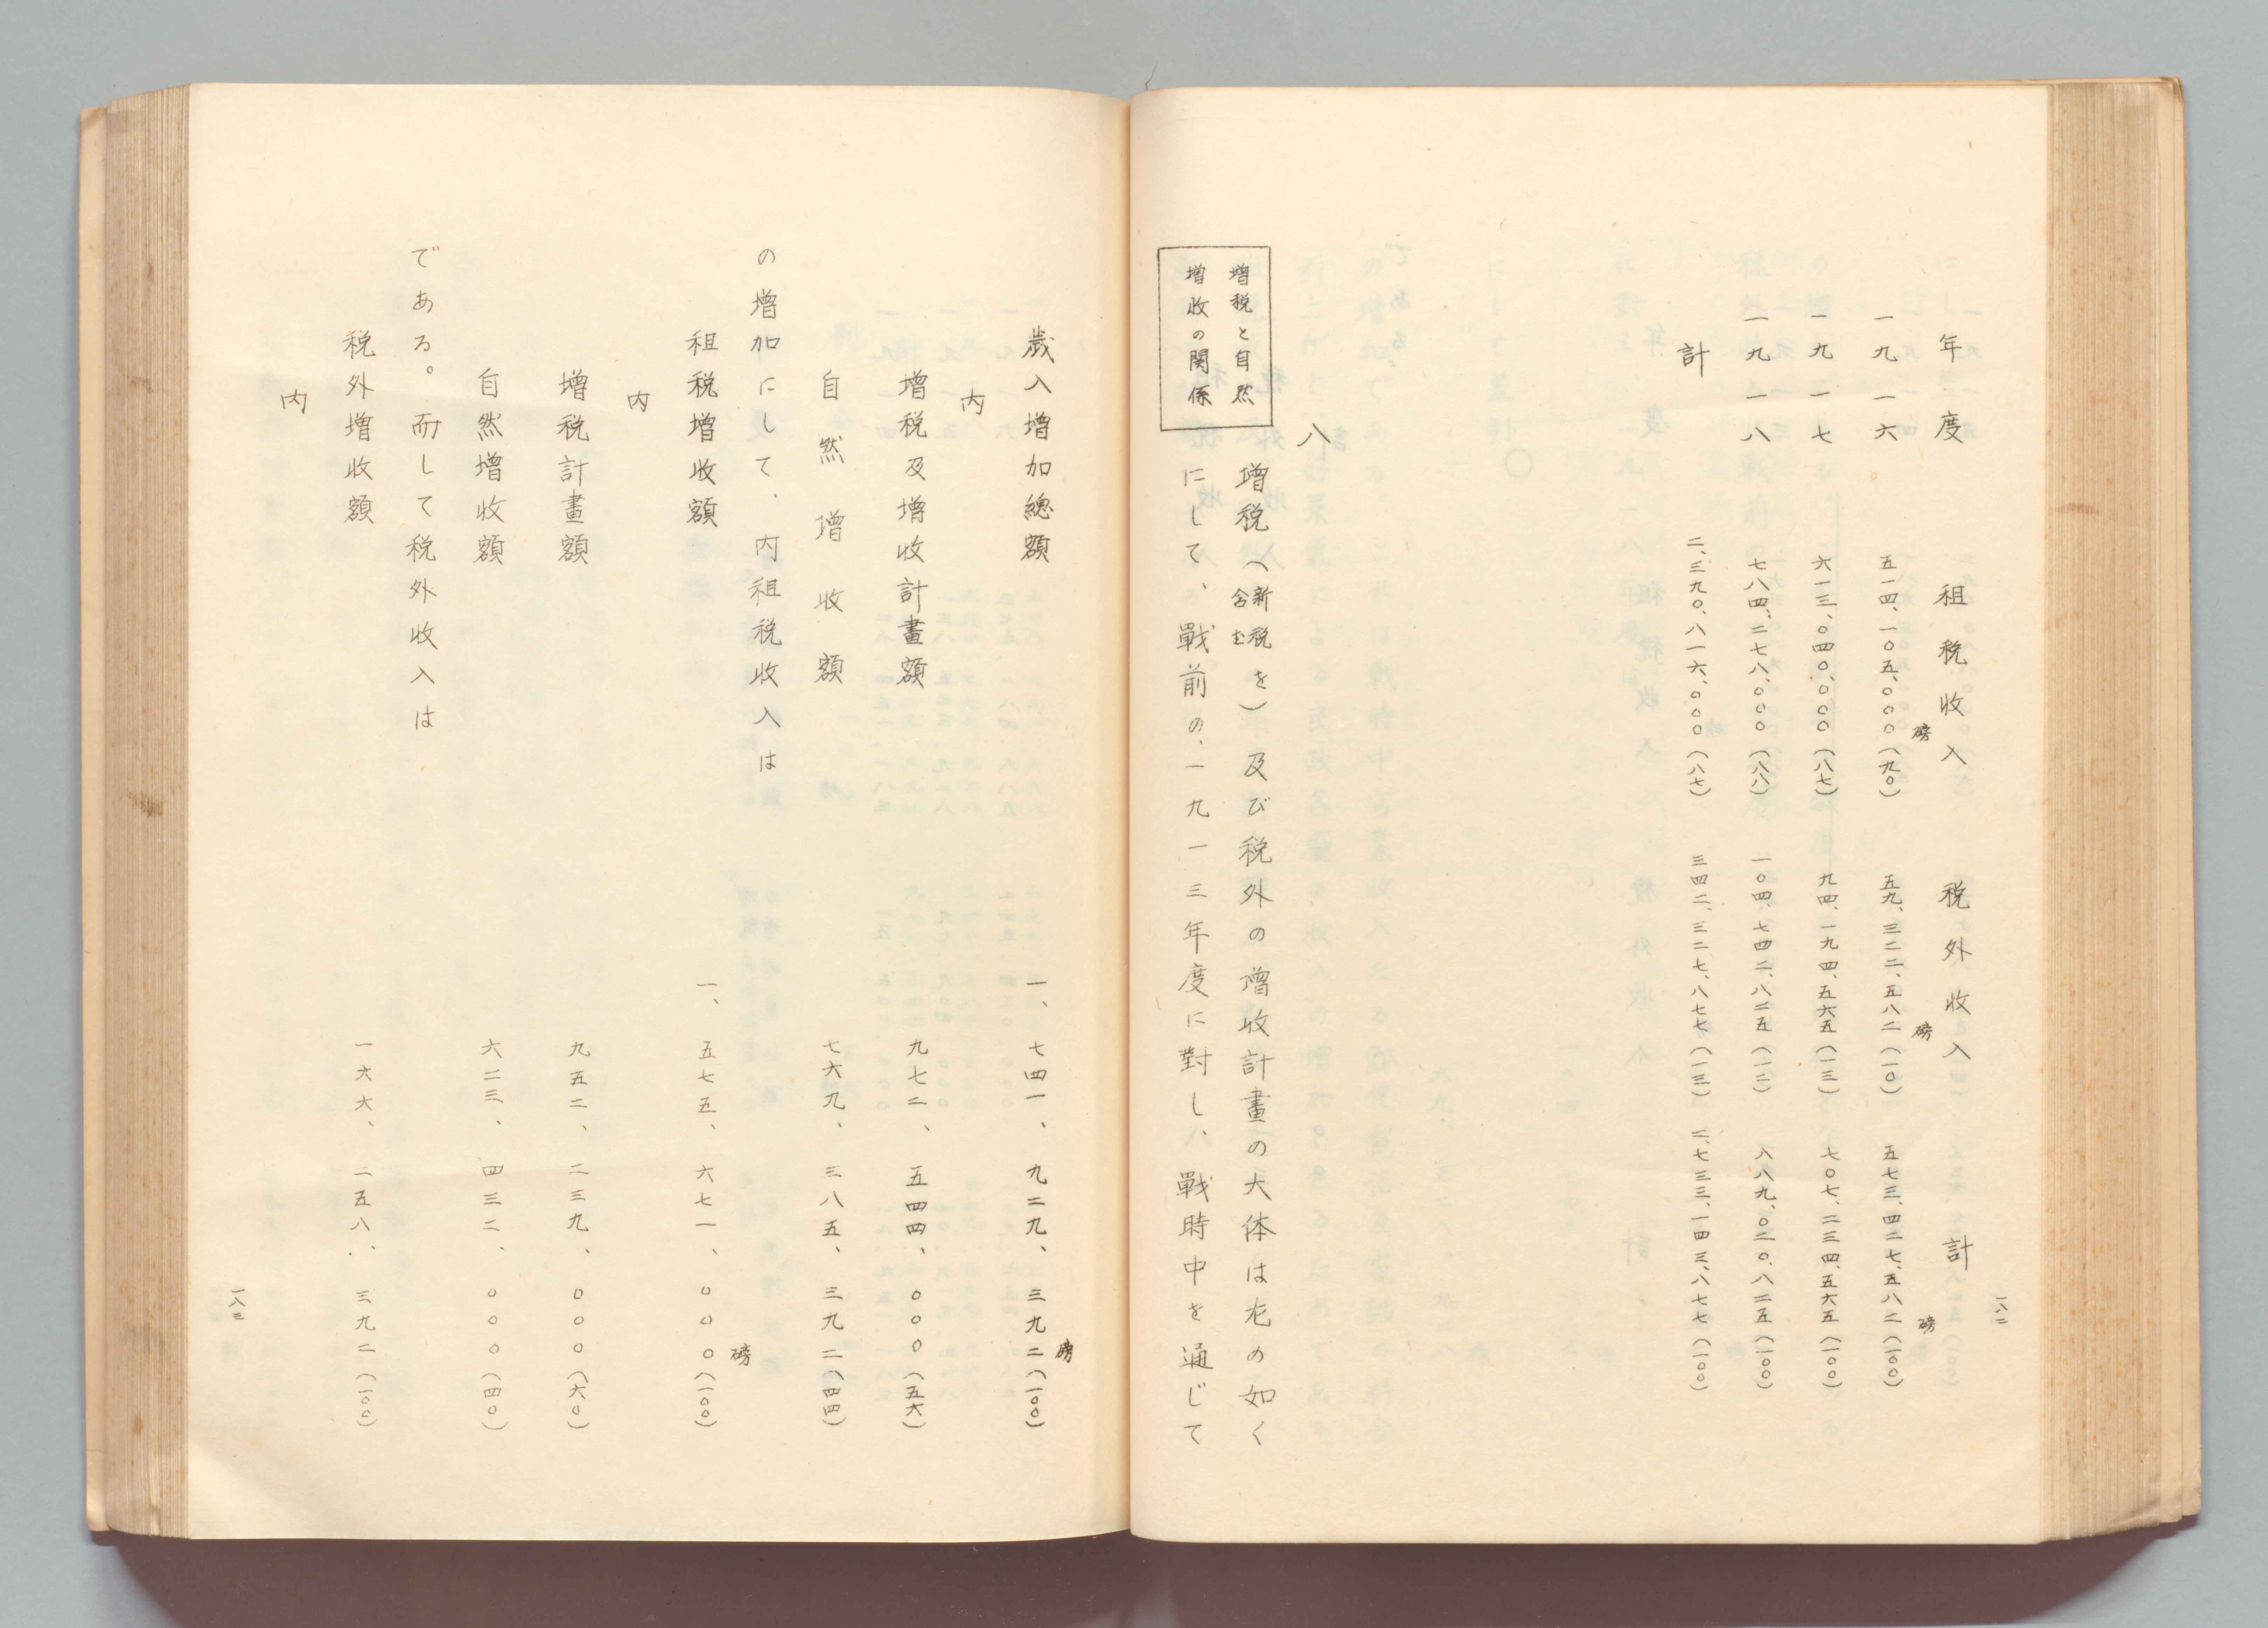 年度　租税収入　税外收入　計
一九一六　五一四、一〇五、〇〇〇磅（九〇）　五九、三二二、五八二磅（一〇）　五七三、四二七、五八二磅（一〇〇）
一九一七　六一三、〇四〇、〇〇〇（八七）　九四、一九四、五六五（一三）　七〇七、二三四、五六五（一〇〇）
一九一八　七八四、二七八、〇〇〇（八八）　一〇四、七四二、八二五（一二）　八八九、〇二〇、八二五（一〇〇）
計　二、三九〇、八一六、〇〇〇（八七）　三四二、三二七、八七七（一三）　二、七三三、一四三、八七七（一〇〇）
八
増税と自然
増收の関係
増税（新税を含む）及び税外の増收計畫の大体は左の如く
にして、戰前の一九一三年度に對し、戰時中を通じて
一八二
歳入増加總額　一、七四一、九二九、三九二磅（一〇〇）
内
増税及増收計畫額　九七二、五四四、〇〇〇（五六）
自然増收額　七六九、三八五、三九二（四四）
の増加にして、内租税收入は
租税増收額　一、五七五、六七一、〇〇〇磅（一〇〇）
内
増税計畫額　九五二、二三九、〇〇〇（六〇）
自然増收額　六二三、四三二、〇〇〇（四〇）
である。而して税外收入は
税外増收額　一六六、二五八、三九二（一〇〇）
内
一八三